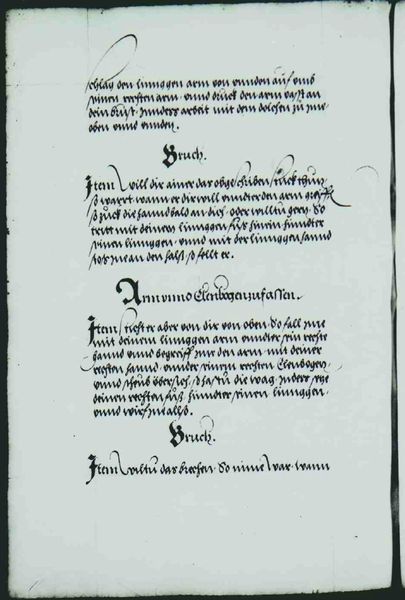 schlag den linnggen arm von unnden auf umb
seinen rechten arm · unnd druck den arm vasst an
dein brust · Inndess arbeit mit dem dolchen zu Im
oben unnd unnden.
Bruch.
Item Will dir ainer das obgeschriben stuck thun
so wart wann er dir will unnder den arm greiffen
so zuck die hannd bald an dich · oder willtu gern · So
tritt mit deinem linnggen fuss Innen hinnder
seinen linnggen · unnd mit der linnggen hannd
stoss Im an den halss so fellt er.
Arm unnd Elenbogen zu fassen.
Item sticht er aber von dir von oben · So fall Im
mit deinem linnggen arm unnder sein rechte
hannd unnd begreiff Im den arm · mit deiner
rechten hannd · unnder seinem rechten Elenbogen
unnd scheub übersich · so hastu die wag · Inndess setz
deinen rechten fuss hinnder seinen linnggen ·
unnd wirf In also.
Bruch.
Item wiltu das brechen · So nimb war · wann